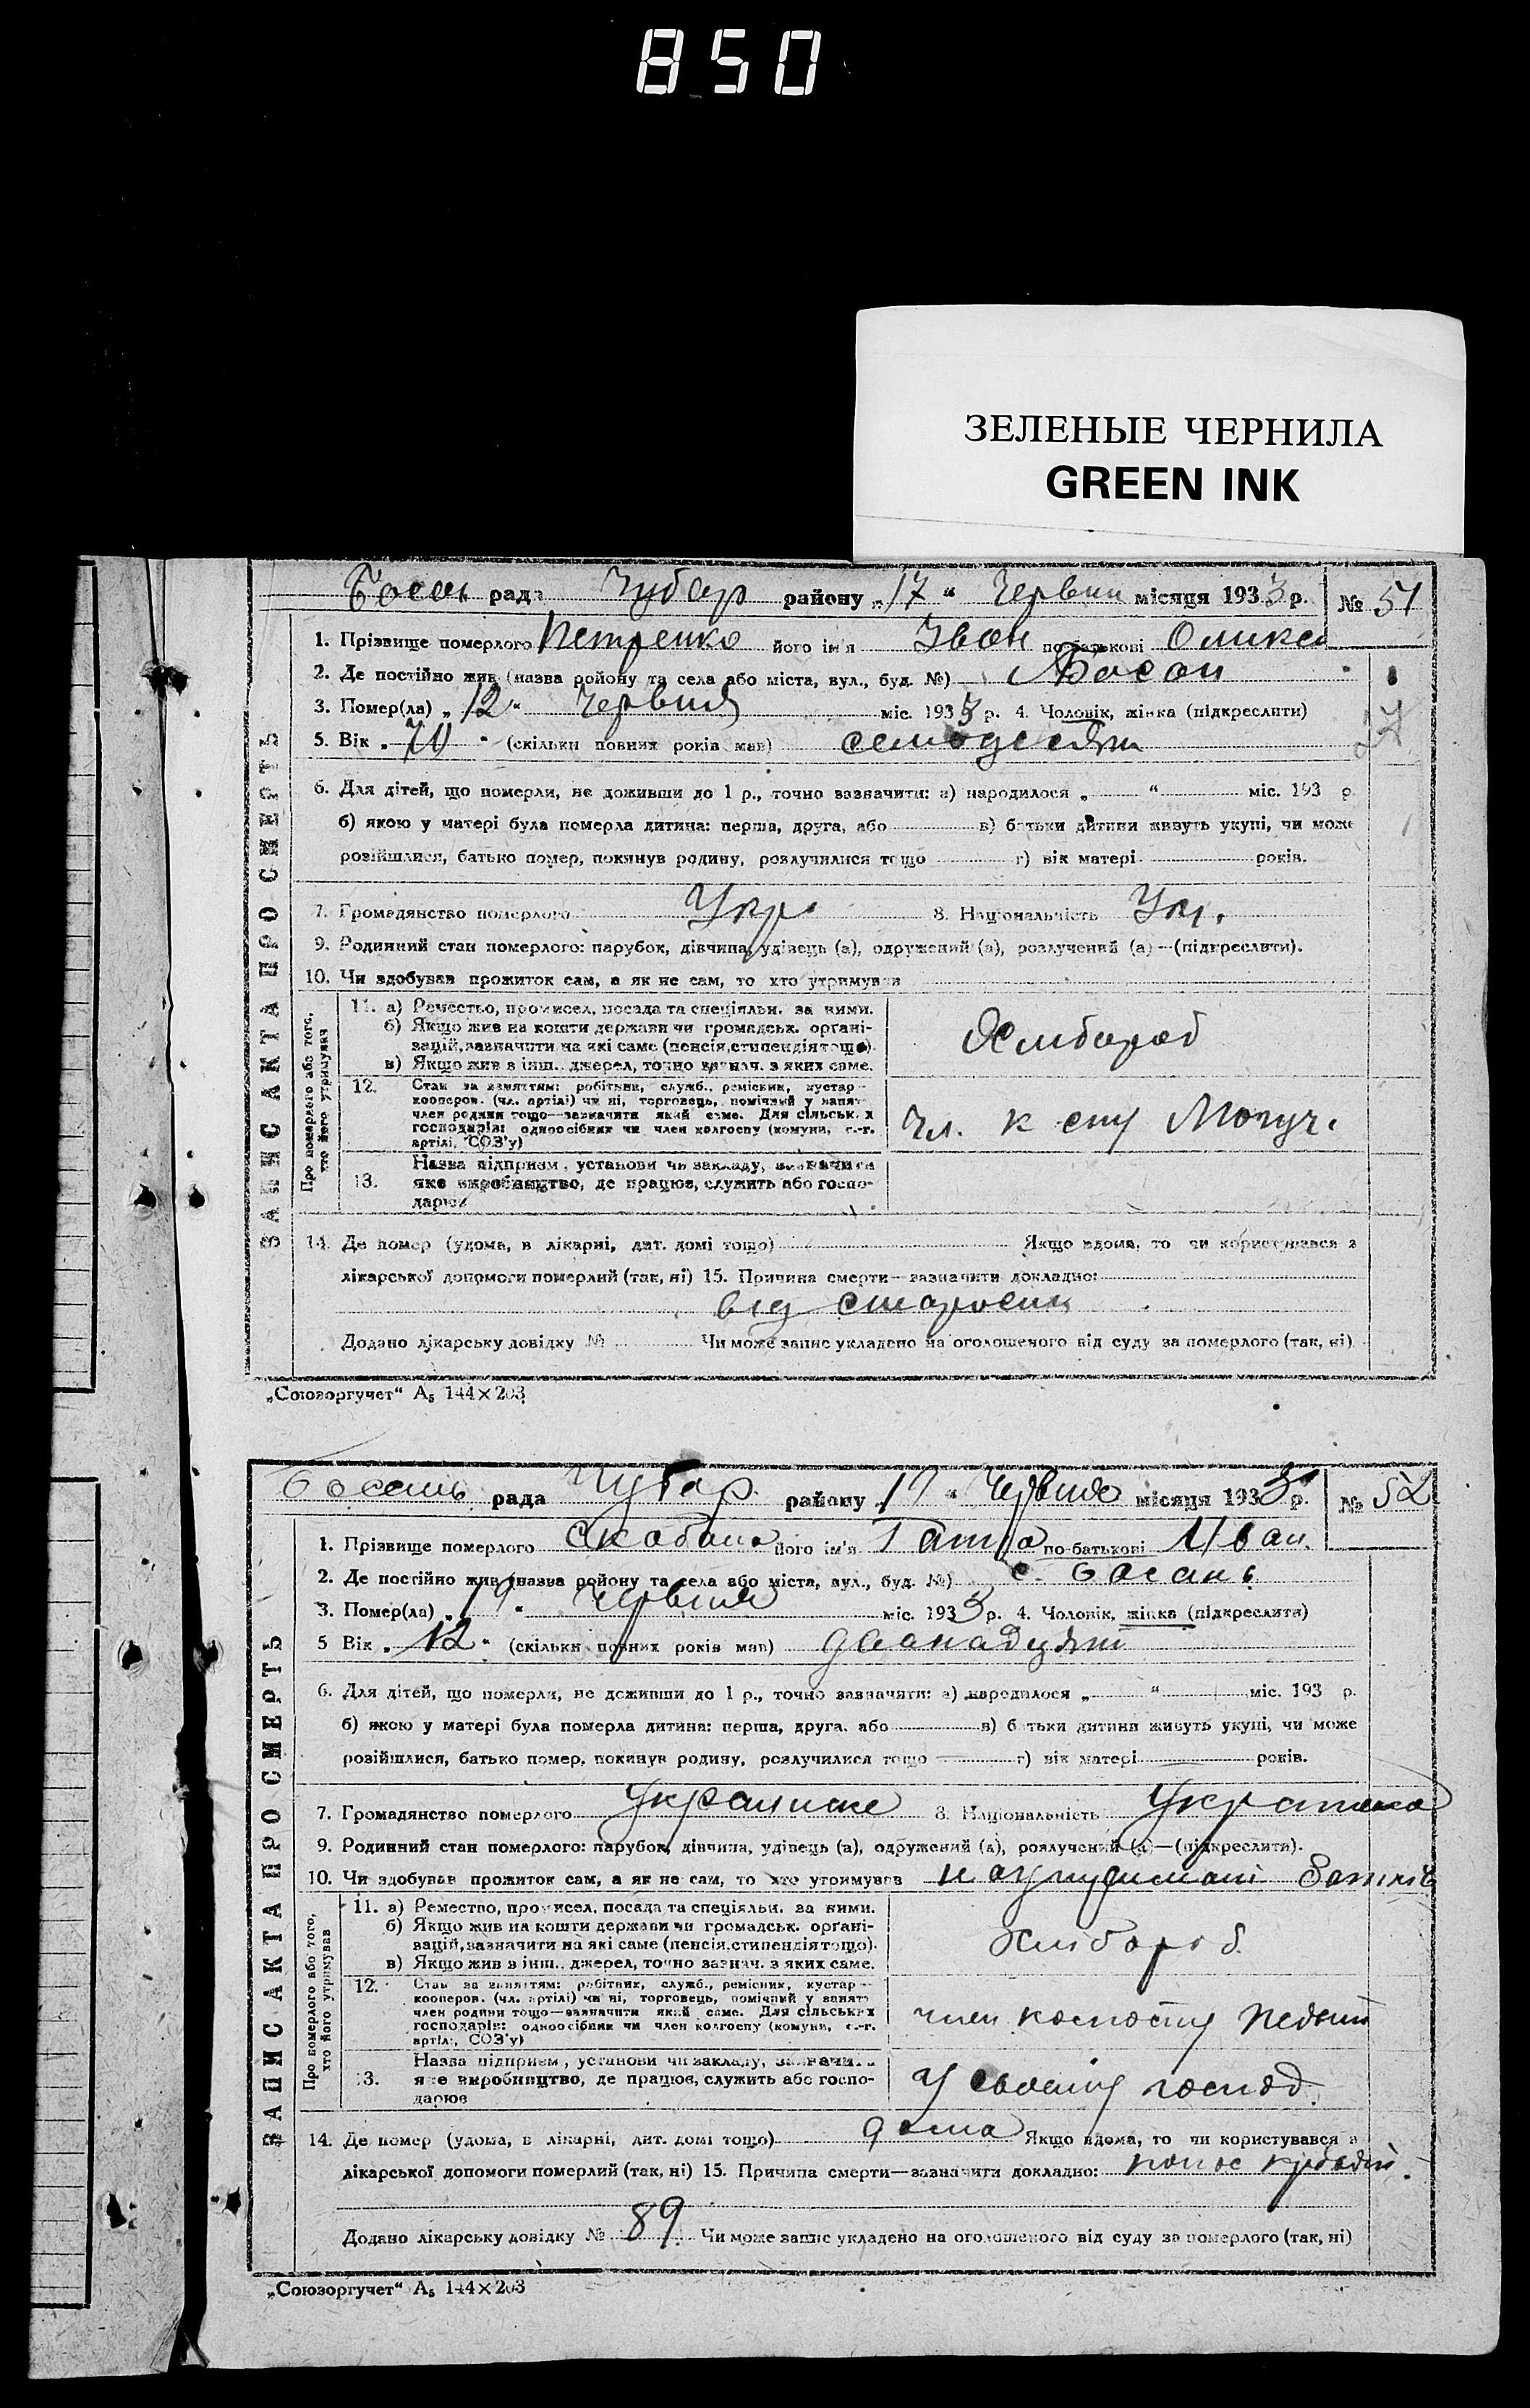 850
ЗЕЛЕНЫЕ ЧЕРНИЛА
GREEN INK
Босань рада Чубар району „17“ Червня місяця 1933 р. № 51
ЗАПИС АКТА ПРО СМЕРТЬ
1. Прізвище померлого Петренко його ім'я Іван по батькові Оликс
2. Де постійно жив (назва ройону та села або міста, вул., буд. №) Босань
3. Помер(ла) „12“ Червня міс. 1933 р. 4. Чоловік, жінка (підкреслити)
5. Вік „70“ (скільки повних років мав) семодесять
6. Для дітей, що померли, не доживши до 1 р., точно зазначити: а) народилося „ “ міс. 193 р.
б) якою у матері була померла дитина: перша, друга, або в) батьки дитини живуть укупі, чи може
розійшлися, батько помер, покинув родину, розлучилися тощо г) вік матері років.
7. Громадянство померлого Укр. 8. Національність Укр.
9. Родинний стан померлого: парубок, дівчина, удівець (а), одружений (а), розлучений (а)—(підкреслити).
10. Чи здобував прожиток сам, а як не сам, то хто утримував
Про померлого або того, хто його утримував
11. а) Ремество, промисел, посада та спеціяльн. за ними.
б) Якщо жив на кошти держави чи громадськ. органі-
зацій, зазначити на які саме (пенсія, стипендія тощо).
в) Якщо жив з інш. джерел, точно зазнач. з яких саме.
Хлібороб
12. Стан за заняттям: робітник, служб., ремісник, кустар—
кооперов. (чл. артілі) чи ні, торговець, помічний у занят.
член родини тощо—зазначити який саме. Для сільськ. х
господарів: одноосібник чи член колгоспу (комуни, с.-г.
артілі, СОЗ'у)
Чл. к спу Могуч.
13. Назва підприєм., установи чи закладу, зазначити
яке виробництво, де працює, служить або госпо-
дарює
14. Де помер (удома, в лікарні, дит. домі тощо) Якщо вдома, то чи користувався з
лікарської допомоги померлий (так, ні) 15. Причина смерти—зазначити докладно:
від старости
Додано лікарську довідку № Чи може запис укладено на оголошеного від суду за померлого (так, ні)
„Союзоргучет“ А5 144×203
Босань рада Чубар району „19“ Червня місяця 1933 р. № 52
ЗАПИС АКТА ПРО СМЕРТЬ
1. Прізвище померлого його ім'я Ганна по-батькові Іван.
2. Де постійно жив (назва ройону та села або міста, вул., буд. №) с. Босань
3. Помер(ла) „19“ Червня міс. 1933 р. 4. Чоловік, жінка (підкреслити)
5 Вік „12“ (скільки повних років мав) дванадцять
6. Для дітей, що померли, не доживши до 1 р., точно зазначити: а) народилося „ “ міс. 193 р.
б) якою у матері була померла дитина: перша, друга, або в) батьки дитини живуть укупі, чи може
розійшлися, батько помер, покинув родину, розлучилися тощо г) вік матері років.
7. Громадянство померлого 8. Національність Українка
9. Родинний стан померлого: парубок, дівчина, удівець (а), одружений (а), розлучений (а)—(підкреслити).
10. Чи здобував прожиток сам, а як не сам, то хто утримував на утримані Батьків
Про померлого або того, хто його утримував
11. а) Ремество, промисел, посада та спеціяльн. за ними.
б) Якщо жив на кошти держави чи громадськ. органі-
зацій, зазначити на які саме (пенсія, стипендія тощо).
в) Якщо жив з інш. джерел, точно зазнач. з яких саме.
Хлібороб
12. Стан за заняттям: робітник, служб., ремісник, кустар—
кооперов. (чл. артілі) чи ні, торговець, помічний у занят.
член родини тощо—зазначити який саме. Для сільських
господарів: одноосібник чи член колгоспу (комуни, с.-г.
артілі, СОЗ'у)
член колгоспу
13. Назва підприєм., установи чи закладу, зазначити
яке виробництво, де працює, служить або госпо-
дарює
У своєму господ.
14. Де помер (удома, в лікарні, дит. домі тощо) дома Якщо вдома, то чи користувався з
лікарської допомоги померлий (так, ні) 15. Причина смерти—зазначити докладно: понос
Додано лікарську довідку № 89 Чи може запис укладено на оголошеного від суду за померлого (так, ні)
„Союзоргучет“ А5 144×203